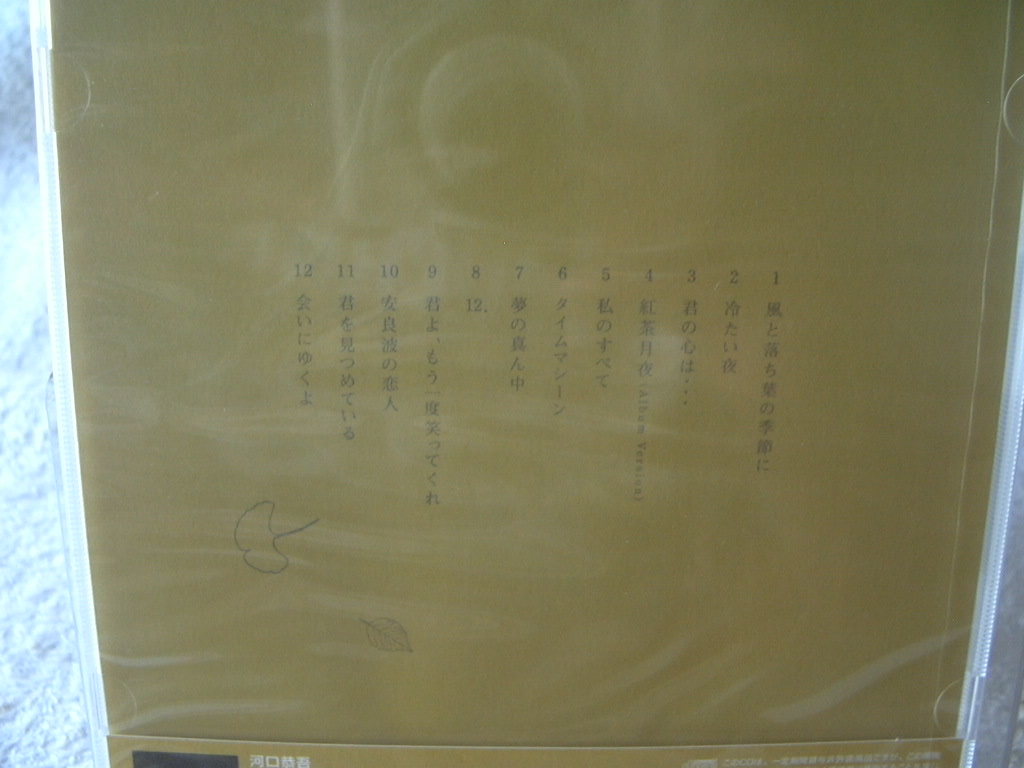 1 風と落ち葉の季節に
2 冷たい夜
3 君の心は・・
4 紅茶月夜(Album Version)
5 私のすべて
6 タイムマシーン
7 夢の真ん中
8 12.
9 君よ、もう一度笑ってくれ
10 安良波の恋人
11 君を見つめている
12 会いにゆくよ
河口恭吾